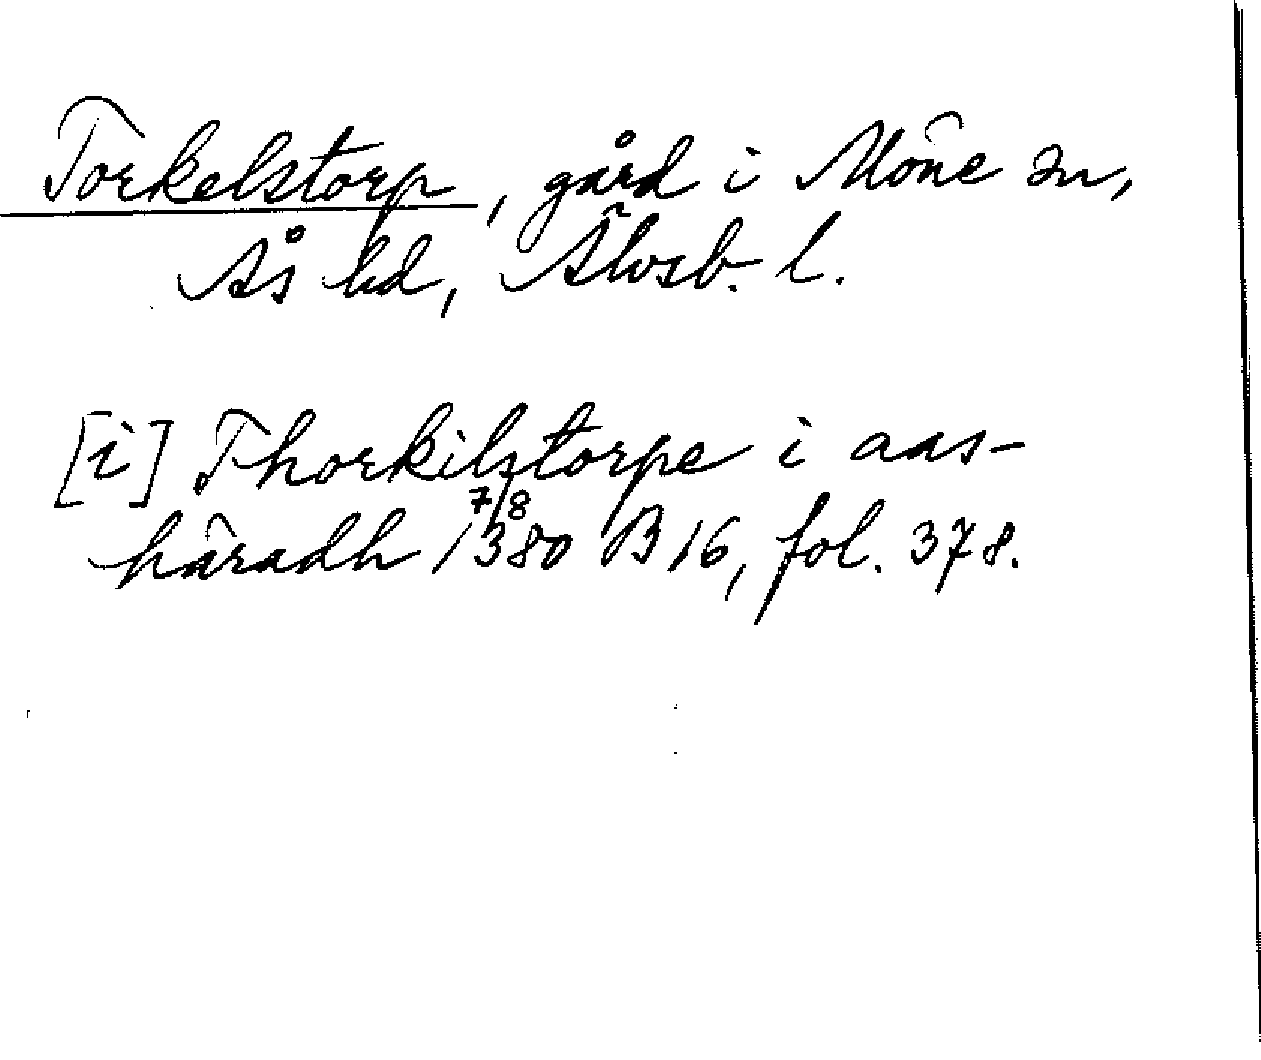 Torkelstorp, gård i Möne sn,
Ås hd, Älvsb. l.
[i] Thorkilstorpe i aas-
häradh 7/8 1380 B 16, fol. 378.